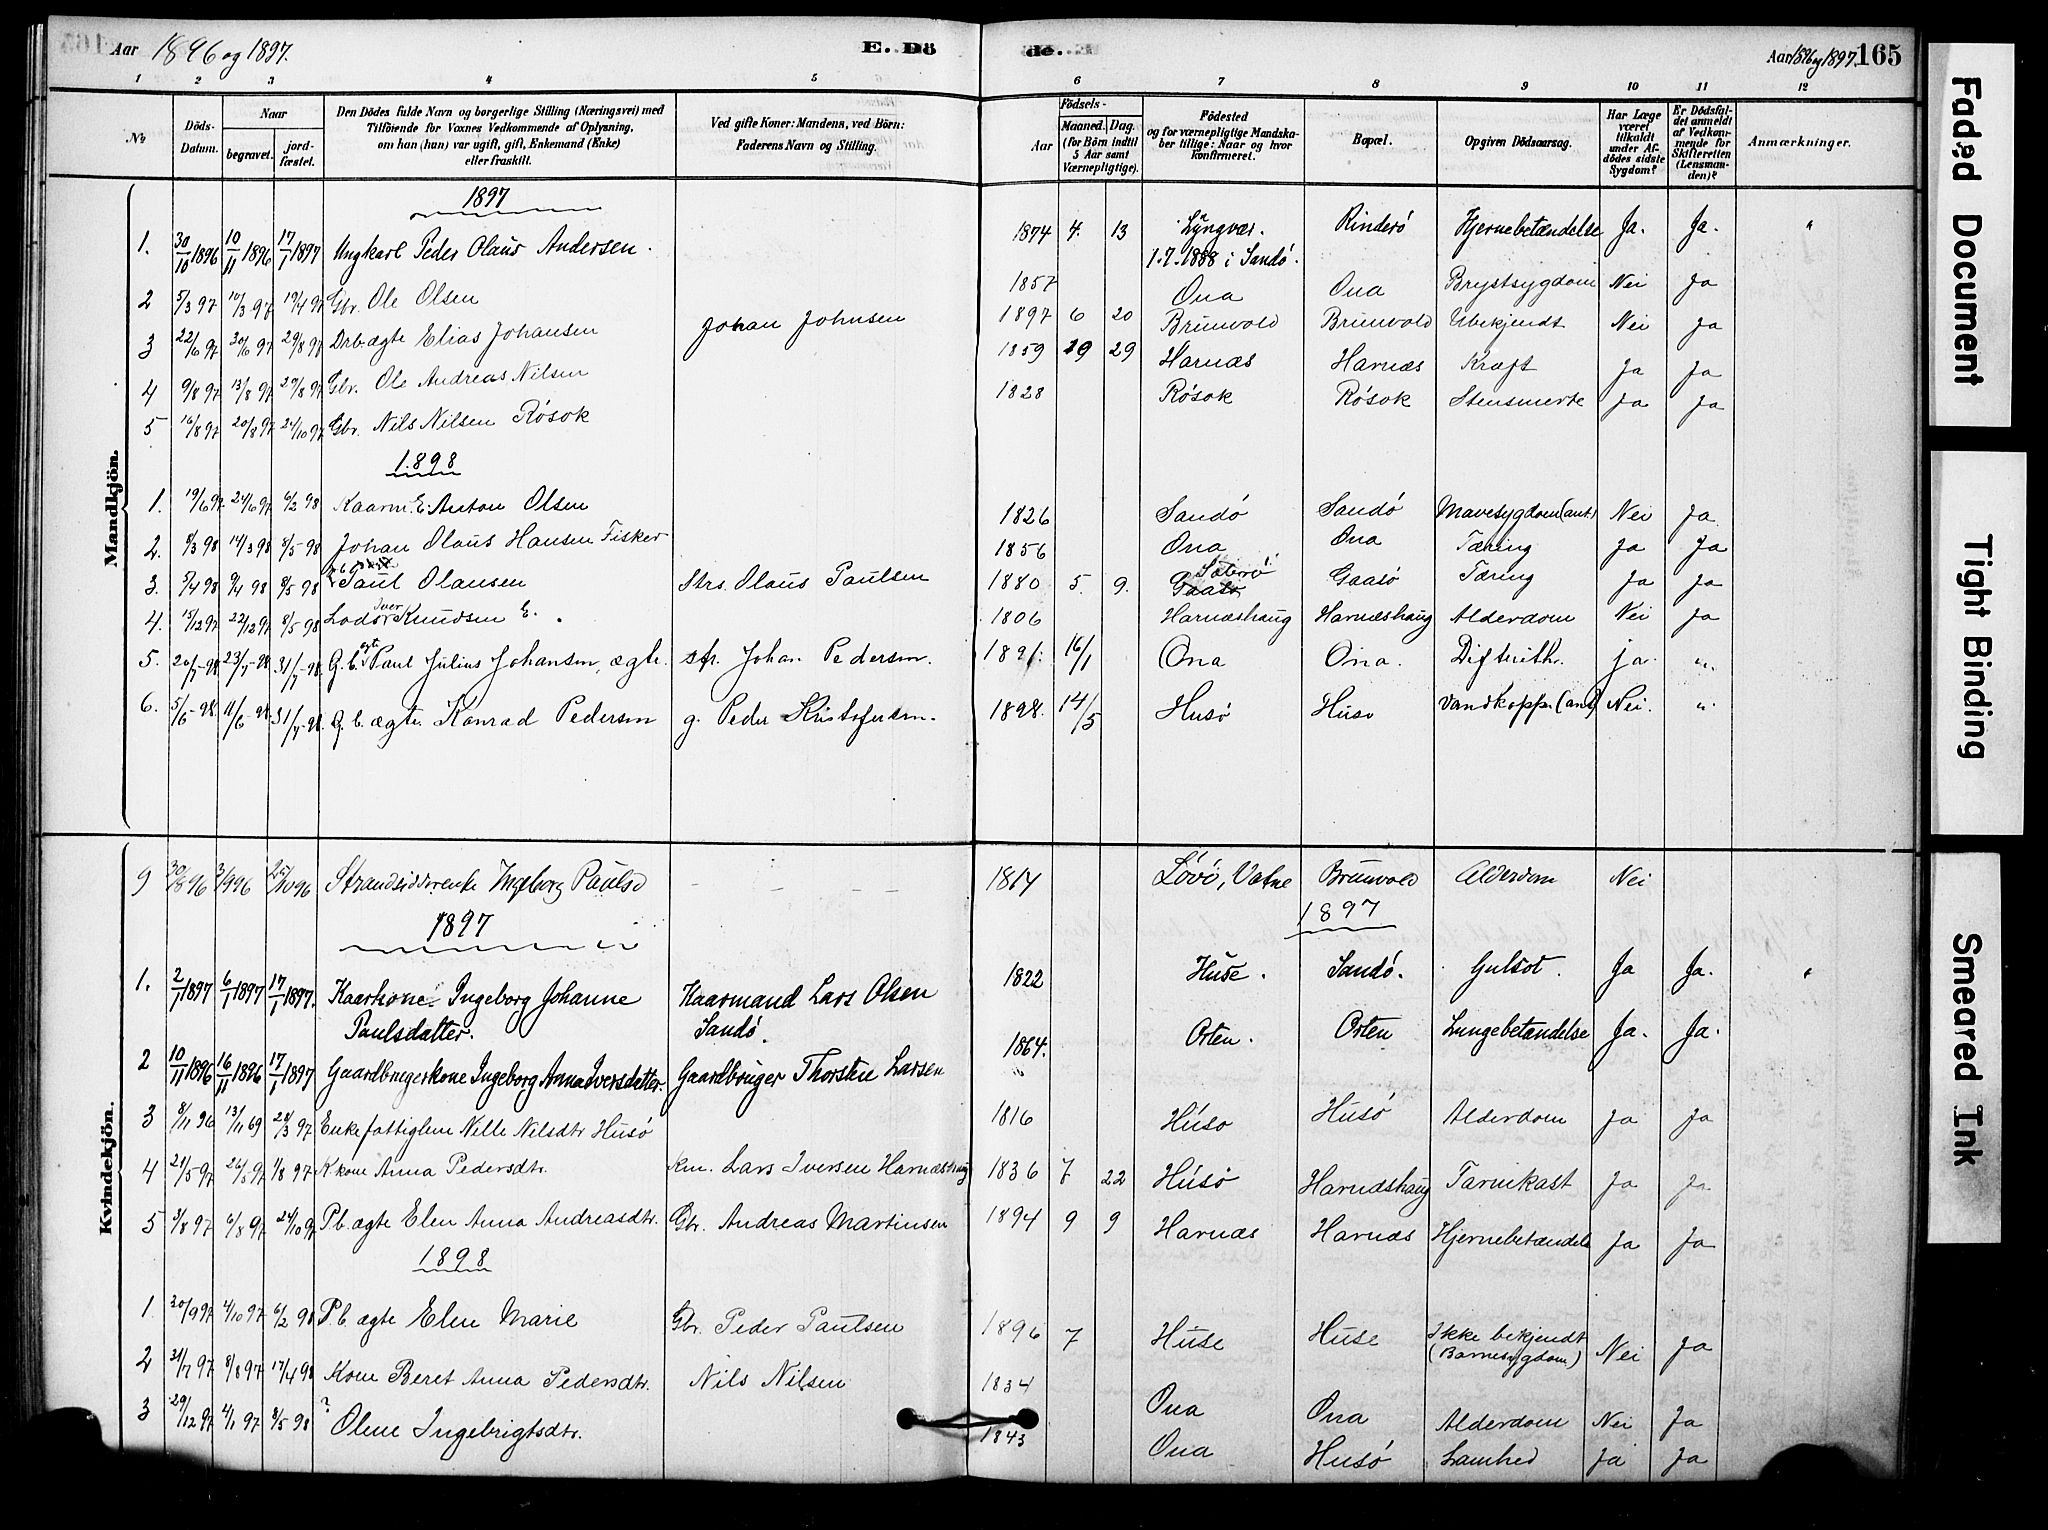 Aar 1896 og 1897.
E. Dö
de.
Aar 1896 og 1897. 165
1 2 3 4 5 6 7 8 9 10 11 12
No
Döds-Datum.
Naar
begravet. jordfæstet.
Den Dödes fulde Navn og borgerlige Stilling (Næringsvei) med Tilföiende for Voxnes Vedkommende af Oplysning, om han (hun) var ugift, gift, Enkemand (Enke) eller fraskilt.
Ved gifte Koner: Mandens, ved Börn: Faderens Navn og Stilling.
Födsels-
Aar Maaned. Dag.
(for Börn indtil 5 Aar samt Værnepligtige).
Födested og for værnepligtige Mandskaber tillige: Naar og hvor konfirmeret.
Bopæl.
Opgiven Dödsaarsag.
Har Læge været tilkaldt under Afdödes sidste Sygdom?
Er Dödsfaldet anmeldt af Vedkommende for Skifteretten (Lensmanden)?
Anmærkninger.
Mandkjön.
1897
1. 30/10 1896 10/11 1896 17/1 1897 Ungkarl Peder Olaus Andersen. 1874 4. 13 Lyngvær. 1.7.1888 i Sandö. Rinderö Hjernebetændelse Ja. Ja. "
2 5/3 97 10/3 97 19/4 97 Gbr. Ole Olsen 1857 Ona Ona Brystsygdom Nei Ja
3 22/6 97 30/6 97 29/8 97 Drb. ægte Elias Johansen Johan Johnsen 1897 6 20 Brunvold Brunvold Ubekjendt Nei Ja
4 9/8 97 13/8 97 29/8 97 Gbr. Ole Andreas Nilsen 1859 29 Harnæs Harnæs Kræft Ja Ja
5 16/8 97 20/8 97 24/10 97 Gbr. Nils Nilsen Rösok 1828 Rösok Rösok Stensmerte Ja Ja
1898
1. 19/6 97 24/6 97 6/2 98 Kaarm. E. Anton Olsen 1826 Sandö Sandö Mavesygdom (ant.) Nei Ja
2. 8/3 98 14/3 98 8/5 98 Johan Olaus Hansen Fisker 1856 Ona Ona Tæring Ja Ja
3. 5/4 98 9/4 98 8/5 98 Paul Olausen Strs. Olaus Paulsen 1880 5. 9. Gaasö Gaasö Tæring Ja Ja
4. 15/12 97 22/12 97 8/5 98 Lods Iver Knudsen E. 1806 Harnæshaug Harnæshaug Alderdom Nei Ja
5. 20/7-98. 23/7-98. 31/7-98. G.b. ægte Paul Julius Johansen, ægte. str. Johan Pedersen. 16/1 Ona Ona. Difterith. ja. "
6. 5/6-98. 11/6-98. 31/7-98. G.b. ægte. Konrad Pedersen g. Peder Kristofersen. 1898. 14/5 Husö Husö Vandkopper (ant) Nei. "
Kvindekjön.
9 30/8 96 3/9 96 25/10 96 Strandsidderenke Ingeborg Paulsd – – – 1814 Lövö, Vatne Brunvold Alderdom Nei
1897 1897
1. 2/1 1897 6/1 1897 17/1 1897. Kaarkone Ingeborg Johanne Paulsdatter. Kaarmand Lars Olsen Sandö. 1822 Huse. Sandö. Gulsot. Ja Ja. "
2 10/11 1896 16/11 1896 17/1 1897 Gaardbrugerkone Ingeborg Anna Iversdatter. Gaardbruger Thorsten Larsen 1864. Orten. Orten Lungebetændelse Ja. Ja.
3 8/11 96 13/11 69 28/3 97 Enke fattiglem Nille Nilsdtr Husö 1816 Husö Husö Alderdom Ja Ja
4 21/5 97 26/5 97 1/8 97 K kone Anna Pedersdtr. Km. Lars Iversen Harnæshaug 1836 7 22 Husö Harnæshaug Tarmkast Ja Ja
5 3/8 97 6/8 97 24/10 97 Pb. ægte Elen Anna Andreasdtr. Gbr. Andreas Martinsen 1894 9 9 Harnæs Harnæs Hjernebetændelse Ja Ja
1898
1 30/9 97 4/10 97 6/2 98 P.b. ægte Elen Marie Gbr. Peder Paulsen 1896 7 Huse Huse Ikke bekjendt (Barnesygdom) Nei Ja
2 31/7 97 8/8 97 17/4 98 Kone Beret Anna Pedersdtr. Nils Nilsen 1834 Ona Ona Alderdom Nei Ja
3 29/12 97 4/1 97 8/5 98 ? Oline Ingebrigtsdtr. 1843 Ona Husö Lamhed Ja Ja
Faded Document
Tight Binding
Smeared Ink